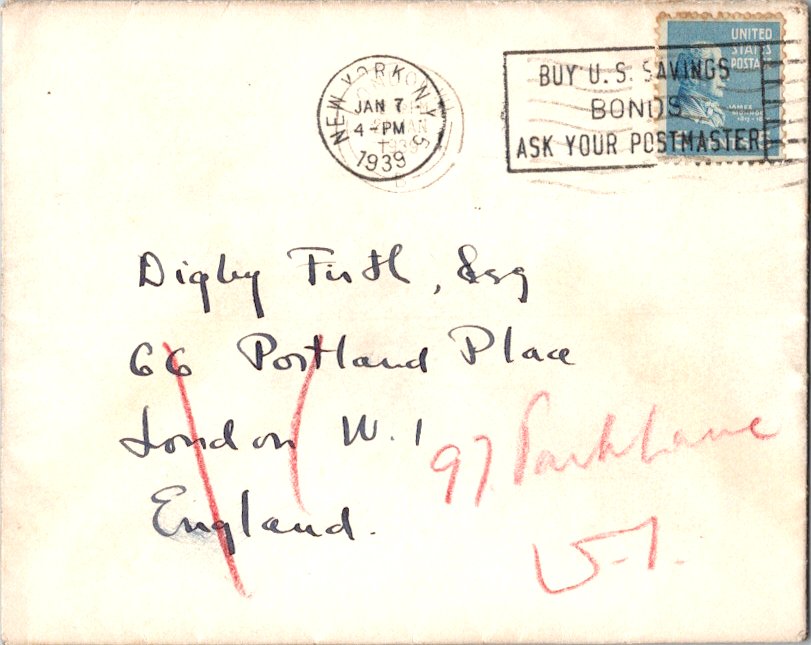 NEW YORK, N.Y. 5
JAN 7
4-PM
1939
BUY U.S. SAVINGS
BONDS
ASK YOUR POSTMASTER
UNITED
STATES
POSTA
JAMES
MONROE
Digby Firth, Esq
66 Portland Place
London W.1
England.
97 Park Lane
W.1.